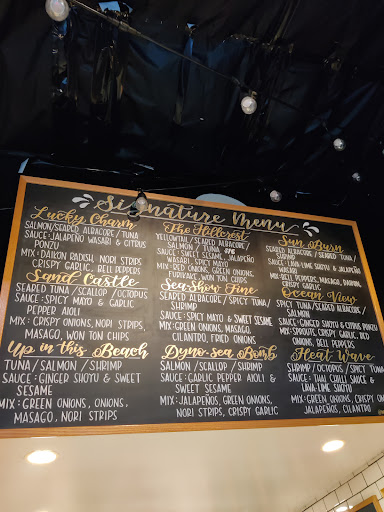 Signature Menu
Lucky Charm
SALMON/SEARED ALBACORE/TUNA
SAUCE: JALAPEÑO WASABI & CITRUS
PONZU
MIX: DAIKON RADISH, NORI STRIPS
CRISPY GARLIC, BELL PEPPERS
Sand Castle
SEARED TUNA/SCALLOP/OCTOPUS
SAUCE: SPICY MAYO & GARLIC
PEPPER AIOLI
MIX: CRISPY ONIONS, NORI STRIPS,
MASAGO, WON TON CHIPS
Up in this Beach
TUNA/SALMON/SHRIMP
SAUCE: GINGER SHOYU & SWEET
SESAME
MIX: GREEN ONIONS, ONIONS,
MASAGO, NORI STRIPS
The Hillcrest
YELLOWTAIL/SEARED ALBACORE/
SALMON/TUNA
SAUCE: SWEET SESAME, JALAPEÑO
WASABI, SPICY MAYO
MIX: RED ONIONS, GREEN ONIONS,
FURIKAKE, WON TON CHIPS
Sea-Show Fine
SEARED ALBACORE/SPICY TUNA/
SHRIMP
SAUCE: SPICY MAYO & SWEET SESAME
MIX: GREEN ONIONS, MASAGO,
CILANTRO, FRIED ONIONS
Dyno-sea Bomb
SALMON/SCALLOP/SHRIMP
SAUCE: GARLIC PEPPER AIOLI &
SWEET SESAME
MIX: JALAPEÑOS, GREEN ONIONS,
NORI STRIPS, CRISPY GARLIC
Sun Burn
SEARED ALBACORE/SEARED TUNA/
SHRIMP
SAUCE: LAVA LIME SHOYU & JALAPEÑO
WASABI
MIX: BELL PEPPERS, MASAGO, DAIKON,
CRISPY GARLIC
Ocean View
SPICY TUNA/SEARED ALBACORE/
SALMON
SAUCE: GINGER SHOYU & CITRUS PONZU
MIX: SPROUTS, CRISPY GARLIC, RED
ONIONS, BELL PEPPERS
Heat Wave
SHRIMP/OCTOPUS/SPICY TUNA
SAUCE: THAI CHILI SAUCE &
LAVA-LIME SHOYU
MIX: GREEN ONIONS, CRISPY ONIONS
JALAPEÑOS, CILANTRO